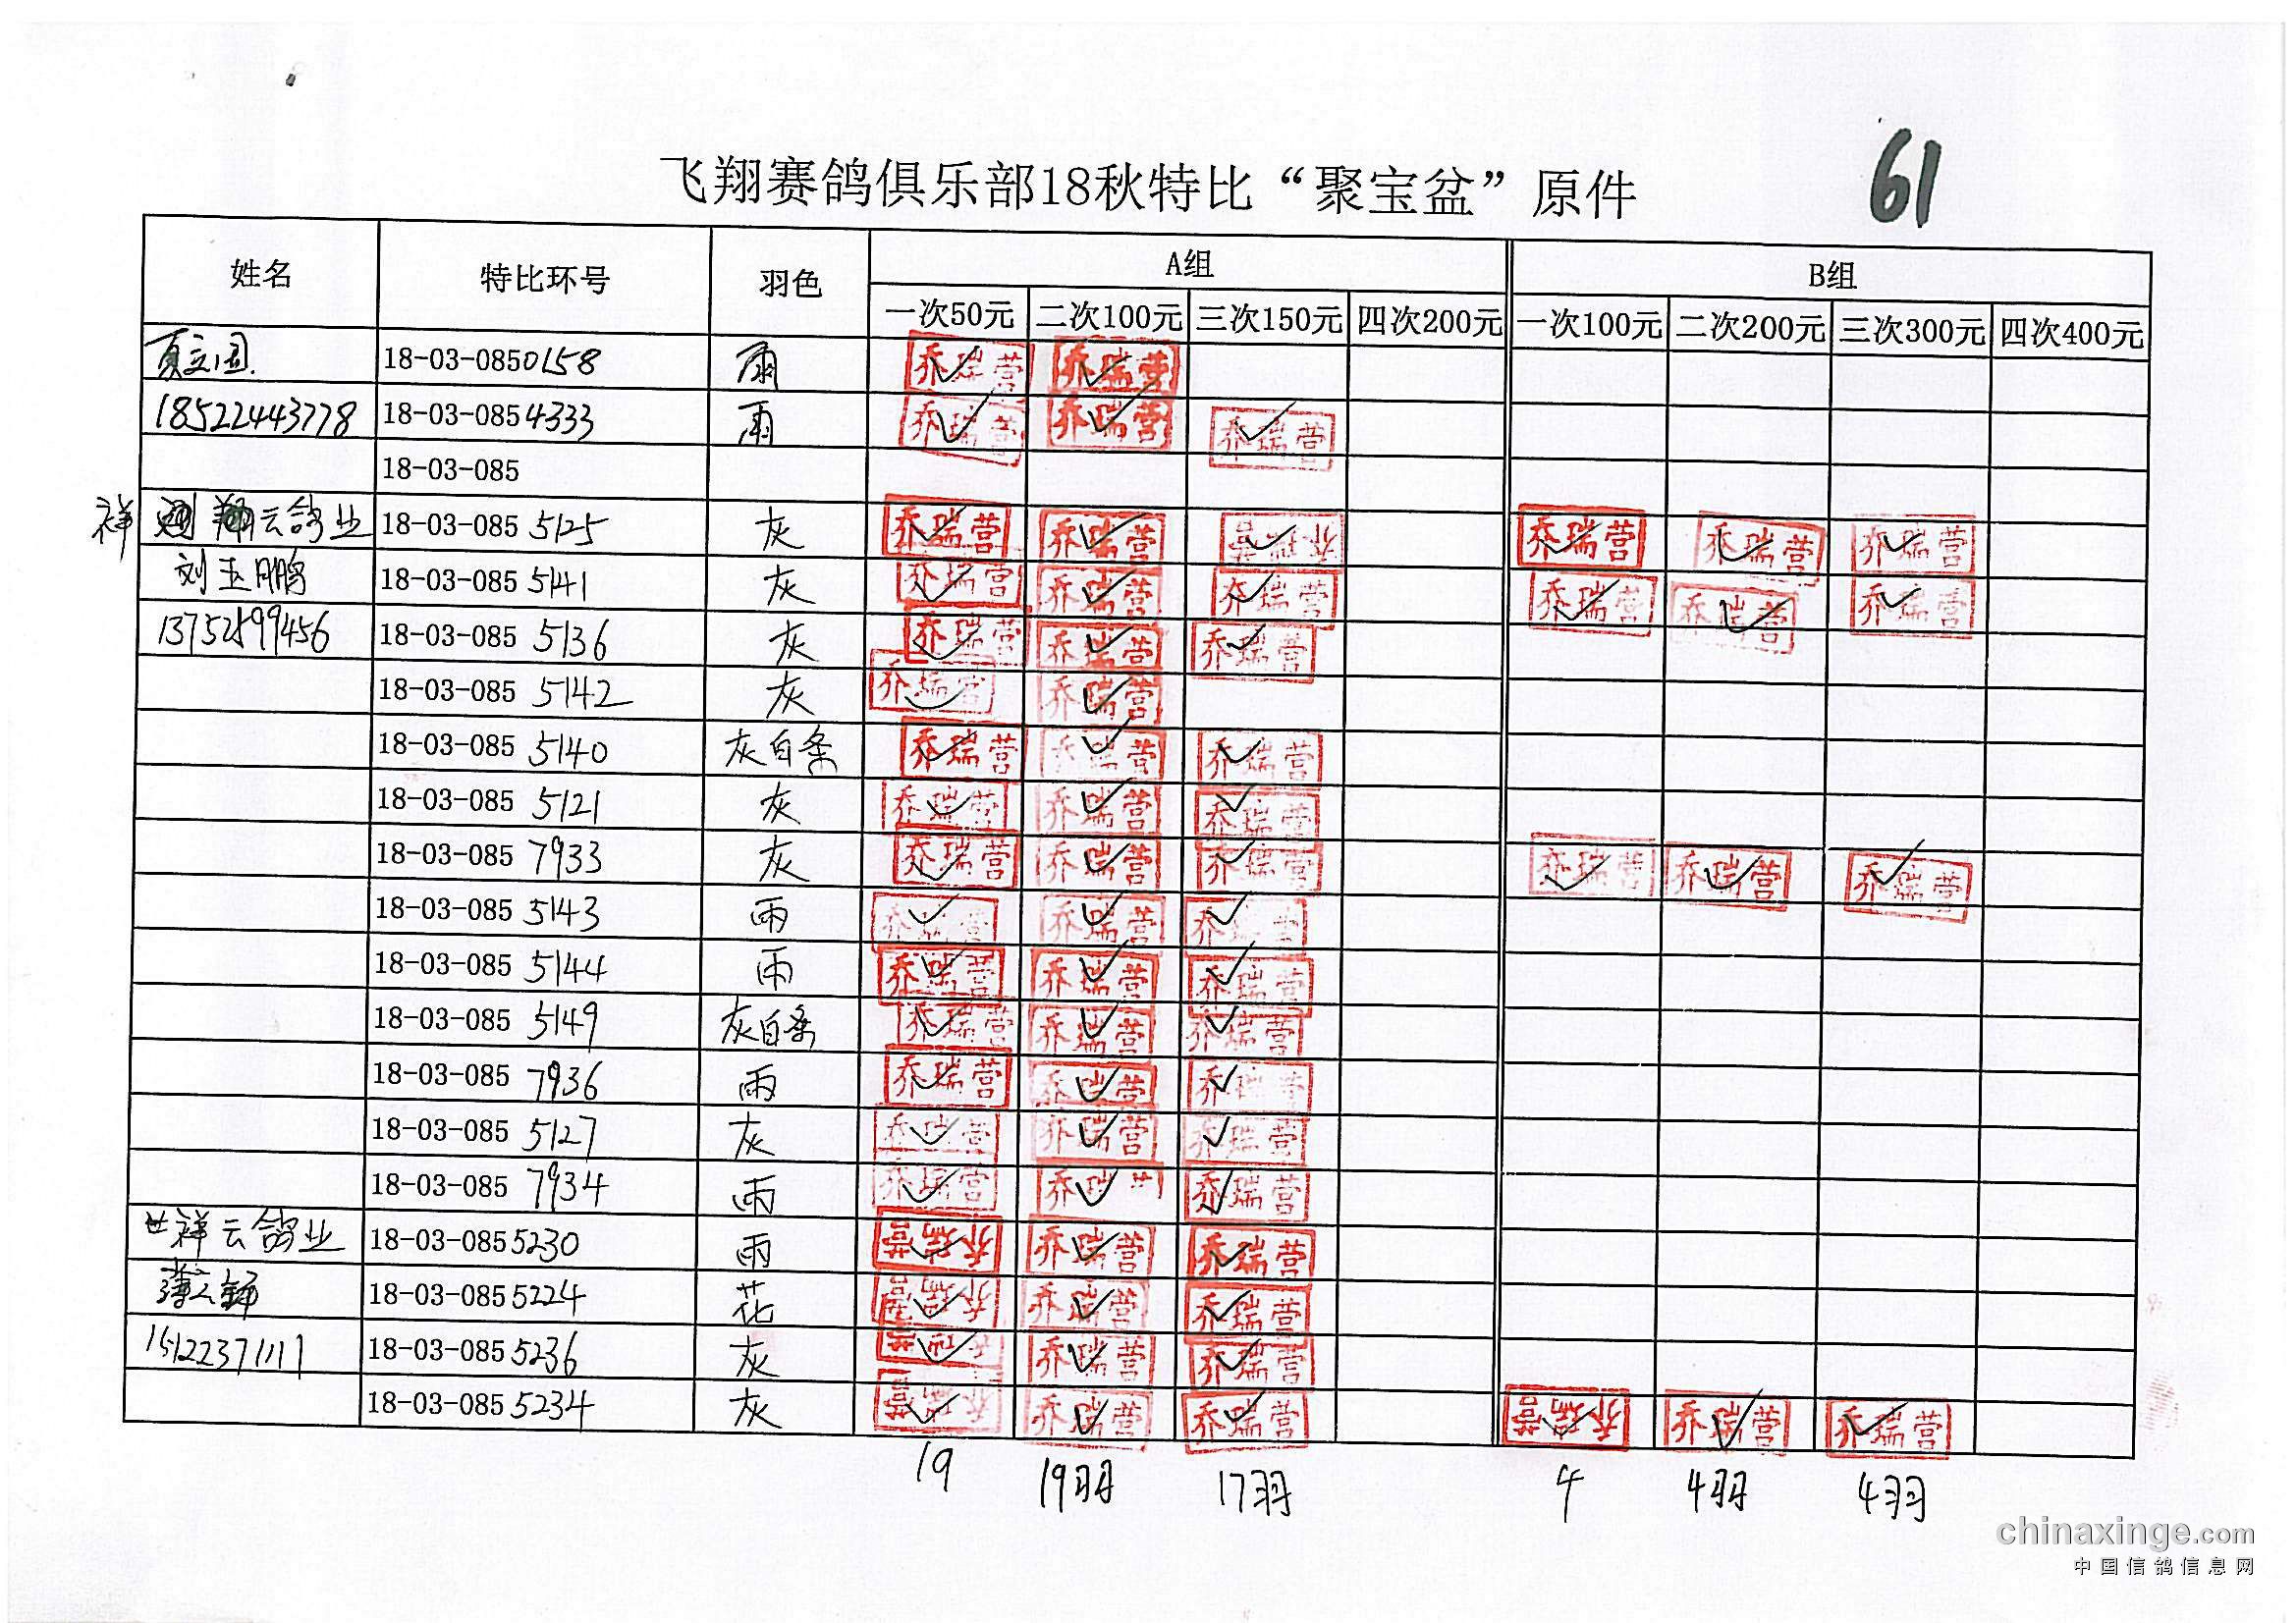 61
飞翔赛鸽俱乐部18秋特比“聚宝盆”原件
姓名 特比环号 羽色 A组 B组
一次50元 二次100元 三次150元 四次200元 一次100元 二次200元 三次300元 四次400元
18-03-0850158 雨 乔瑞营 乔瑞营
18522443778 18-03-0854333 雨 乔瑞营 乔瑞营 乔瑞营
18-03-085
祥 翔云鸽业 18-03-085 5125 灰 乔瑞营 乔瑞营 乔瑞营 乔瑞营 乔瑞营 乔瑞营
刘玉鹏 18-03-085 5141 灰 乔瑞营 乔瑞营 乔瑞营 乔瑞营 乔瑞营 乔瑞营
13752599456 18-03-085 5136 灰 乔瑞营 乔瑞营 乔瑞营
18-03-085 5142 灰 乔瑞营 乔瑞营
18-03-085 5140 灰白条 乔瑞营 乔瑞营 乔瑞营
18-03-085 5121 灰 乔瑞营 乔瑞营 乔瑞营
18-03-085 7933 灰 乔瑞营 乔瑞营 乔瑞营 乔瑞营 乔瑞营 乔瑞营
18-03-085 5143 雨 乔瑞营 乔瑞营 乔瑞营
18-03-085 5144 雨 乔瑞营 乔瑞营 乔瑞营
18-03-085 5149 灰白条 乔瑞营 乔瑞营 乔瑞营
18-03-085 7936 雨 乔瑞营 乔瑞营 乔瑞营
18-03-085 5127 灰 乔瑞营 乔瑞营 乔瑞营
18-03-085 7934 雨 乔瑞营 乔瑞营 乔瑞营
世祥云鸽业 18-03-0855230 雨 乔瑞营 乔瑞营 乔瑞营
18-03-0855224 花 乔瑞营 乔瑞营 乔瑞营
15122371111 18-03-0855236 灰 乔瑞营 乔瑞营 乔瑞营
18-03-0855234 灰 乔瑞营 乔瑞营 乔瑞营 乔瑞营 乔瑞营 乔瑞营
19 19羽 17羽 4 4羽 4羽
chinaxinge.com
中国信鸽信息网